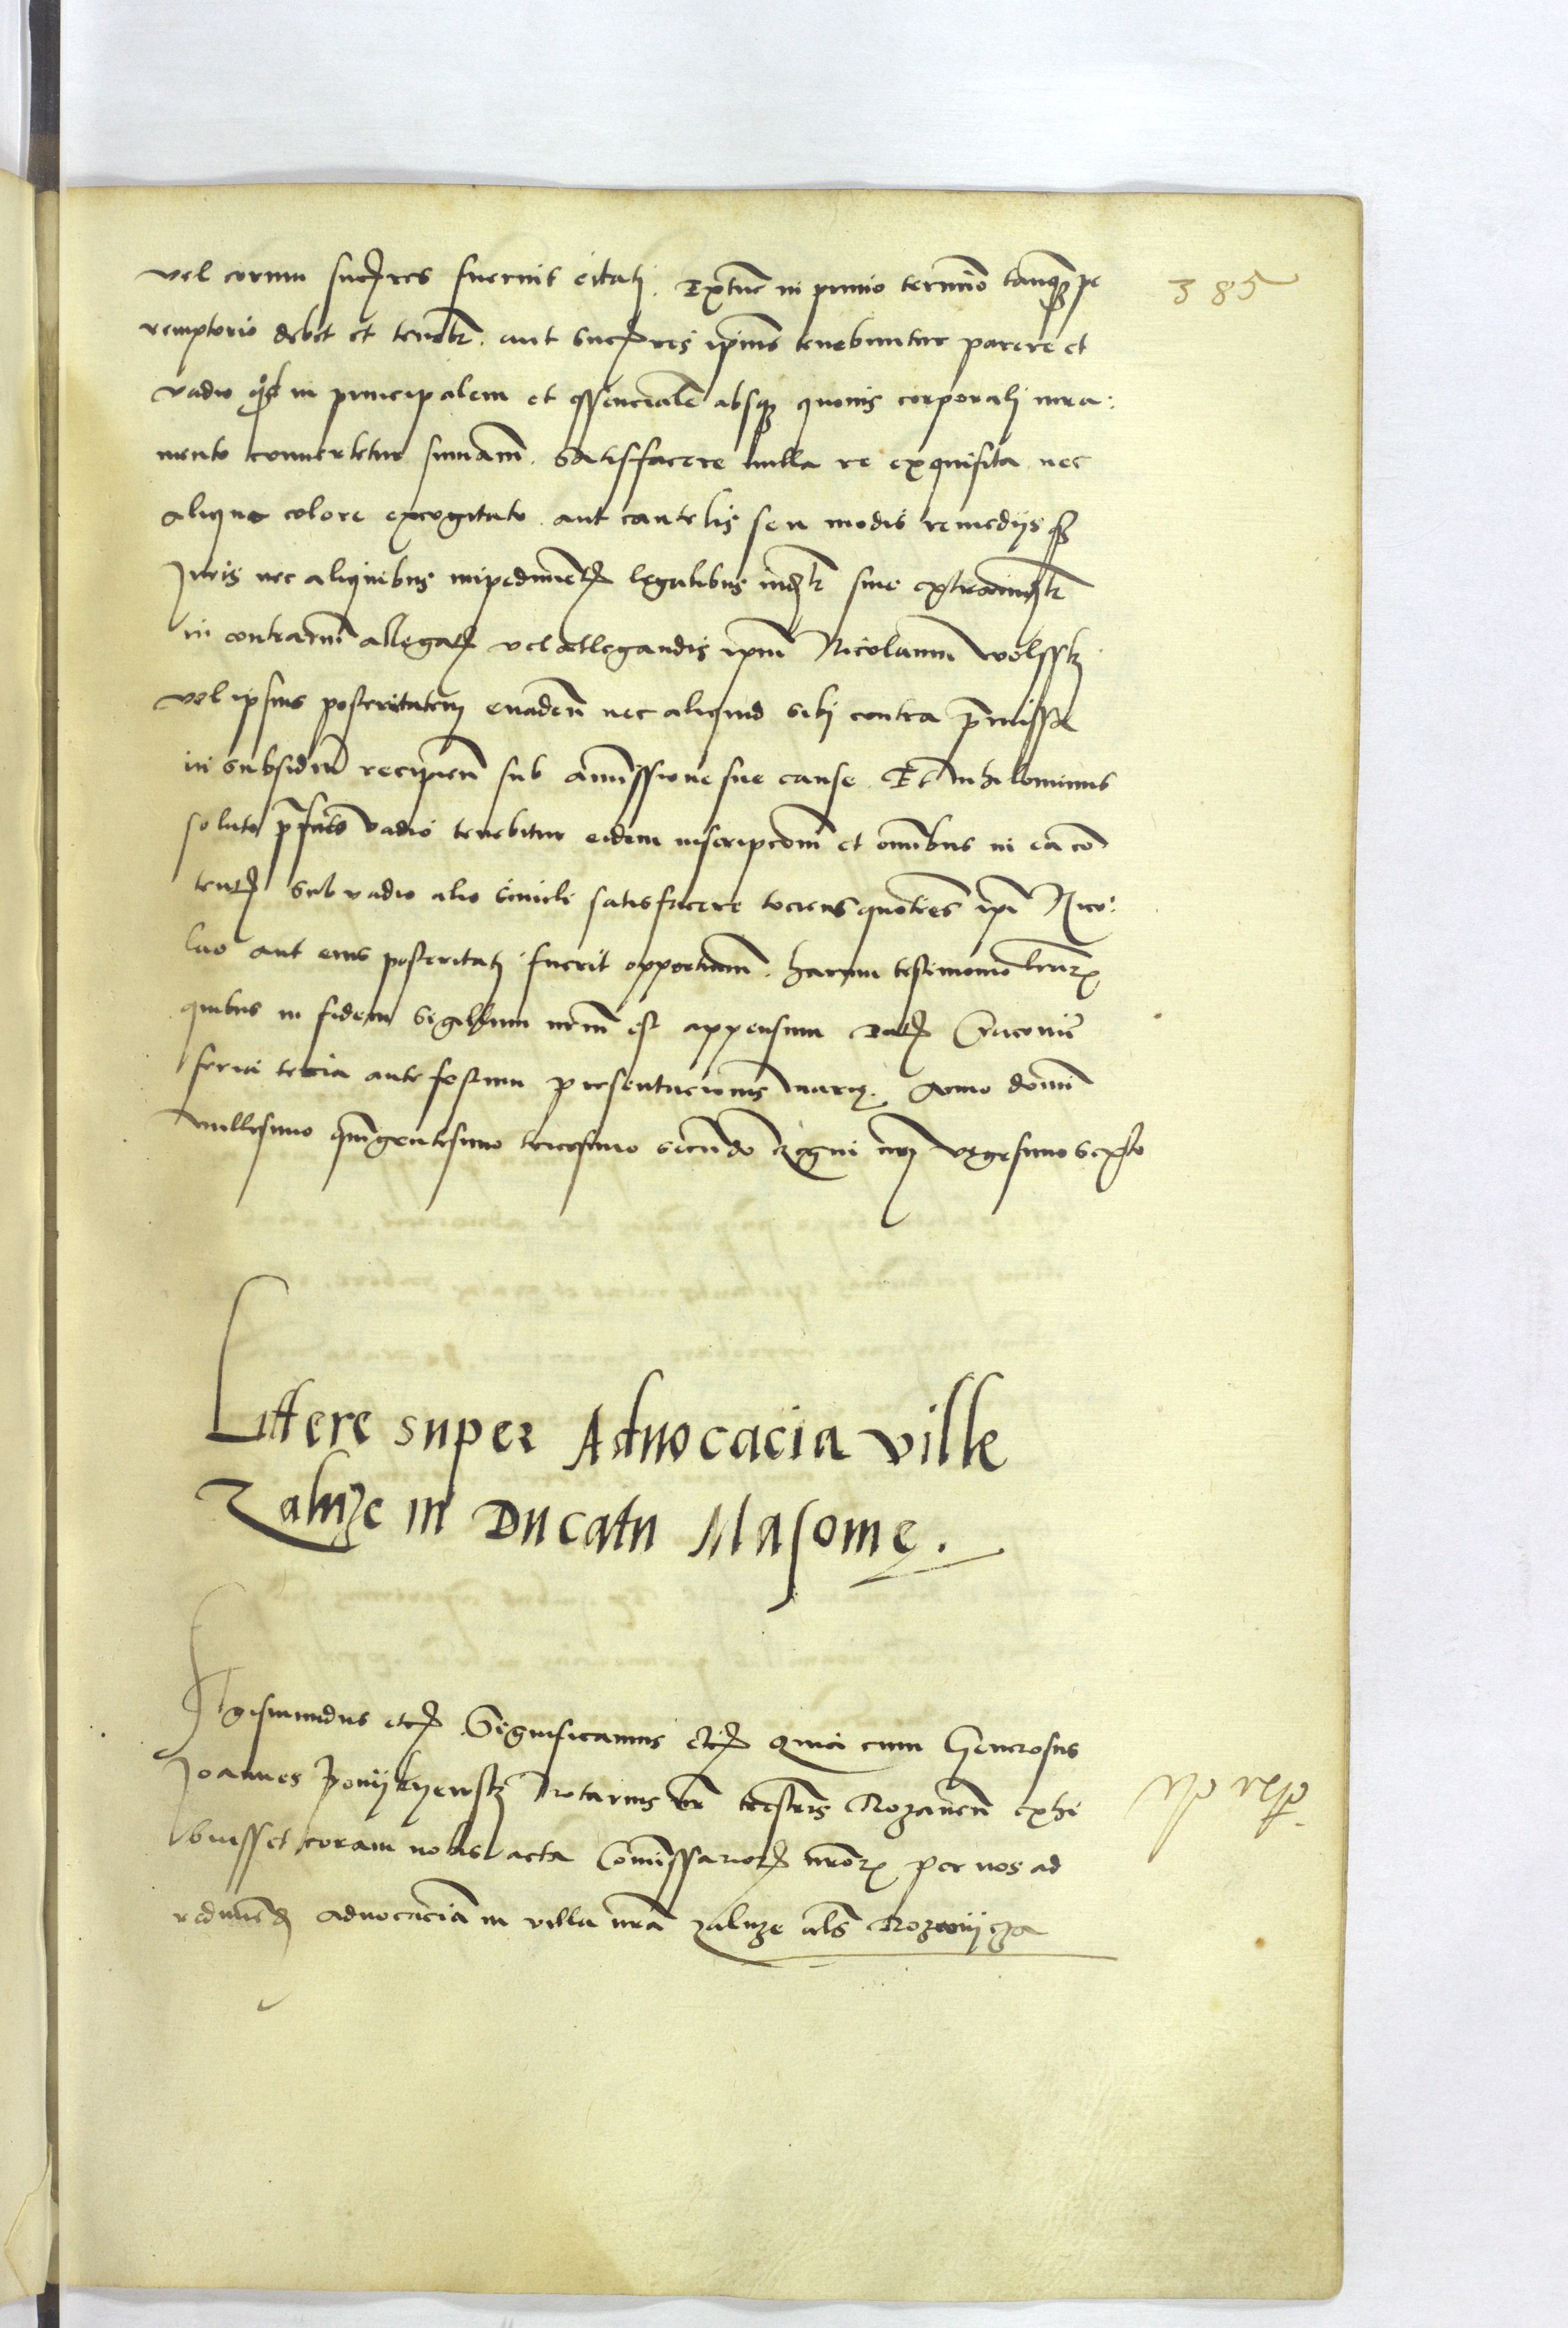 385
vel eorum succ̄res fuerint citati. Extunc in primo termino tanq̃ pe
remptorio debet et tenebit̃. aut succ̄res ip̃ius tenebuntur parere et
vadio q̃d in principalem et essencialẽ absq̃ quouis corporali iura:
mento conuertetur sum̃am. satisfacere nulla re exquisita nec
aliquo colore excogitato. aut cautelis seu modis remedijs q̃
Juris nec aliquibus impedimẽt̃ legalibus siue
in contrariũ allegat̃ vel allegandis ip̃m Nicolaum Wolssky
vel ipsius posteritatem euadeñ nec aliquid sibi contra p̃missa
in subsidiũ recipieñ sub amissione sue cause. Et nihilominus
soluto vadio tenebitur eidem inscripcioni et omnibus in ea cõ
tent̃ sub vadio alio simili satisfacere tociens quoties ip̃i Nico:
lao aut eius posteritati fuerit opportunũ. harum testimonio lrãrũ
quibus in fidem Sigillum nr̃m est appensum Dat̃ Cracouie
feria tercia ante festum presentacionis marię. Anno domini
millesimo quingentesimo tricesimo secundo Regni nr̃i vigesimo sexto
Littere super Aduocacia ville
Zaluze in Ducatu Masouie.
Sigismundus etc̃ Significamus etc̃ Quia cum Generosus
Joannes Notarius terrestris Rozaneñ exhi
buisset coram nobis acta Com̃issariorũ nr̃orũ per nos ad
redimẽd̃ aduocaciã in villa nr̃a Zaluze al̃s